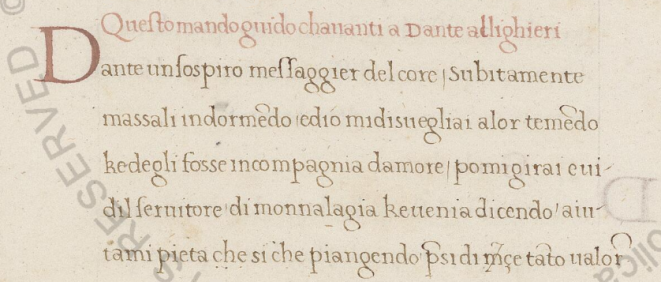 Questo mando guido chavanti a Dante allighieri
Dante un sospiro messaggier del core / Subitamente
massali indormēdo / edio midisuegliai alor temēdo
kedegli fosse incompagnia damore / pomigirai e ui-
dil seruitore / di monnalagia ke uenia dicendo / aiu-
tami pieta che si che piangendo / p̄si di m̄çe tāto ualor
RESERVED